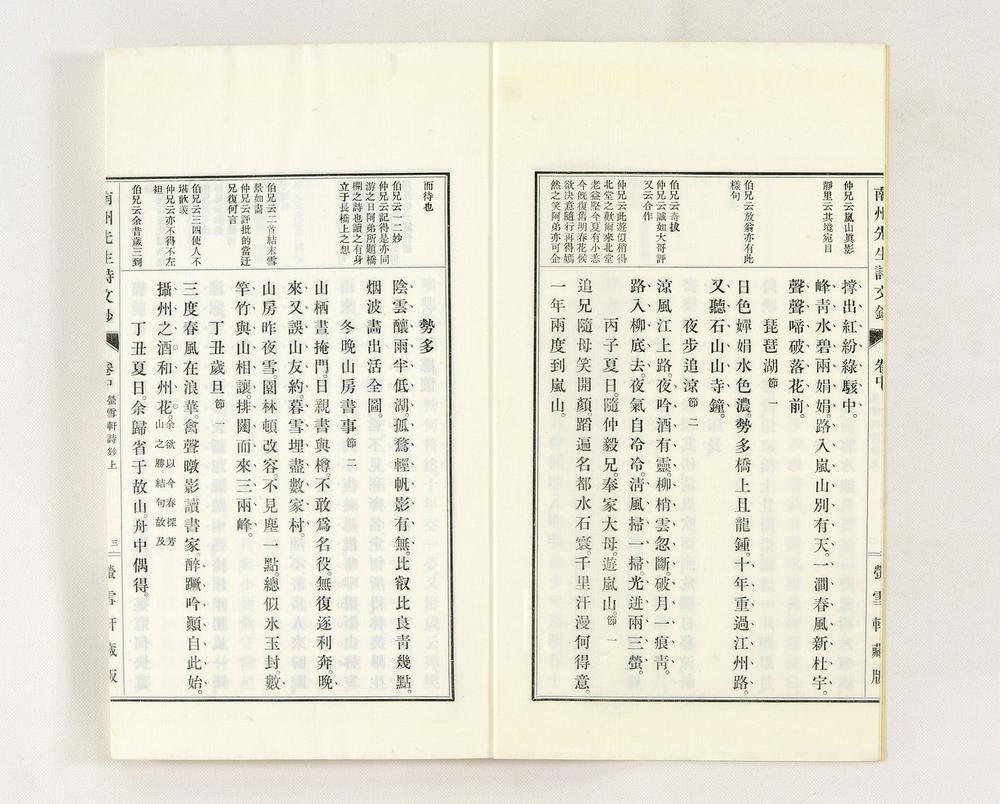 南州先生詩文鈔
卷中
螢雪軒藏版
仲兄云嵐山眞影
靜里云其境宛目
伯兄云放翁亦有此
樣句
伯兄云奇拔
仲兄云誠如大哥評
又云合作
仲兄云此遊似稍得
北堂之歡爾來北堂
老益堅今夏有小恙
今既復舊明春花候
欲決意隨行再得嫣
然之笑阿弟亦可企
撑出紅紛綠駭中。
峰靑水碧兩娟娟。路入嵐山別有天。一澗春風新杜宇。
聲聲啼破落花前。
琵琶湖 節一
日色嬋娟水色濃。勢多橋上且龍鍾。十年重過江州路。
又聽石山山寺鐘。
夜步追涼 節二
涼風江上路。夜吟酒有靈。柳梢雲忽斷。破月一痕靑。
路入柳底去。夜氣自冷冷。淸風掃一掃。光迸兩三螢。
丙子夏日。隨仲毅兄。奉家大母。遊嵐山 節一
追兄隨母笑開顏。蹈遍名都水石寰。千里汗漫何得意。
一年兩度到嵐山。
而待也
伯兄云一二妙
仲兄云記得是亦同
游之日阿弟所題橋
欄之詩也讀之有身
立于長橋上之想
伯兄云二首結末雪
景如畵
仲兄云評批的當迂
兄復何言
伯兄云三四使人不
堪歆羨
仲兄云亦不得不左
袒
伯兄云余昔歲三到
勢多
陰雲釀雨半低湖。孤鶩輕帆影有無。比叡比良靑幾點。
烟波畵出活全圖。
冬晩山房書事 節二
山栖晝掩門。日親書與樽。不敢爲名役。無復逐利奔。晩
來又誤山友約。暮雪埋盡數家村。
山房昨夜雪。園林頓改容。不見塵一點。總似氷玉封。數
竿竹與山相讓。排闥而來三兩峰。
丁丑歲旦 節一
三度春風在浪華。禽聲暾影讀書家。醉蹶吟顚自此始。
攝州之酒和州花。余欲以今春探芳山之勝。結句故及
丁丑夏日。余歸省于故山。舟中偶得。
南州先生詩文鈔
卷中
螢雪軒詩鈔上
三
螢雪軒藏版